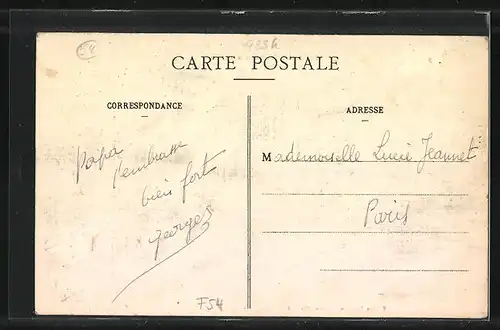 CARTE POSTALE
CORRESPONDANCE
Papa
t'embrasse
bien fort
Georges
F54
ADRESSE
Mademoiselle Lucie Jeannet
Paris